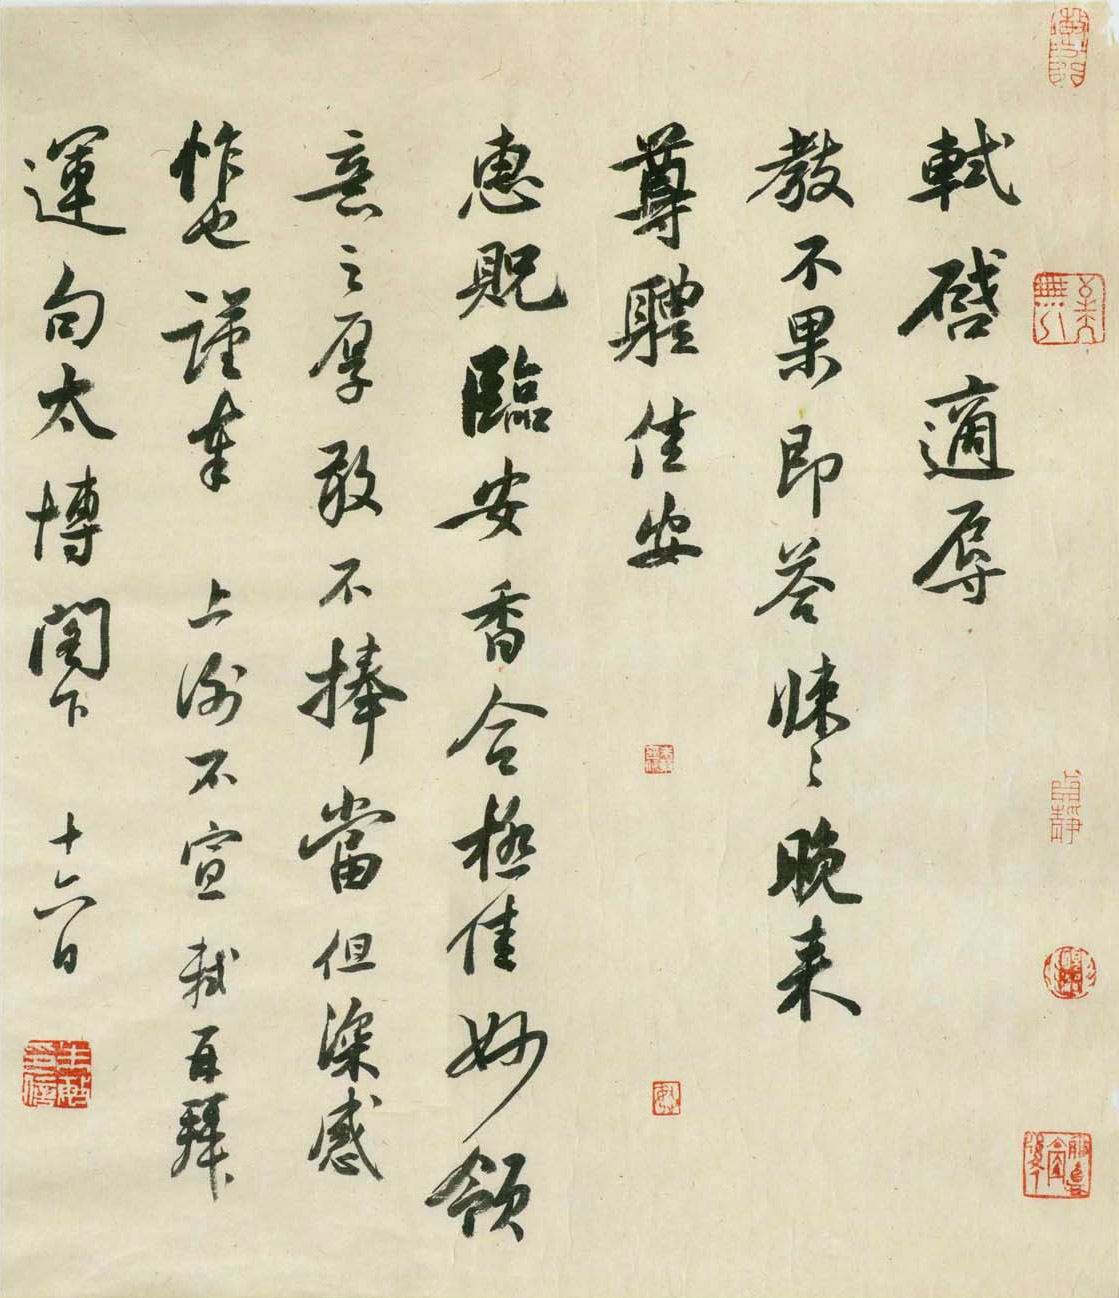 軾啓適辱
教不果即答悚悚晚来
尊體佳安
惠貺臨安香合極佳妙領
意之厚敢不捧當但深感
怍也謹奉 上谢不宣 軾再拜
運句太博閣下 十六日